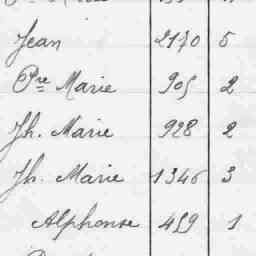 Jean 2170 5
Pre Marie 905 2
Jh. Marie 928 2
Jh. Marie 1346 3
Alphonse 459 1